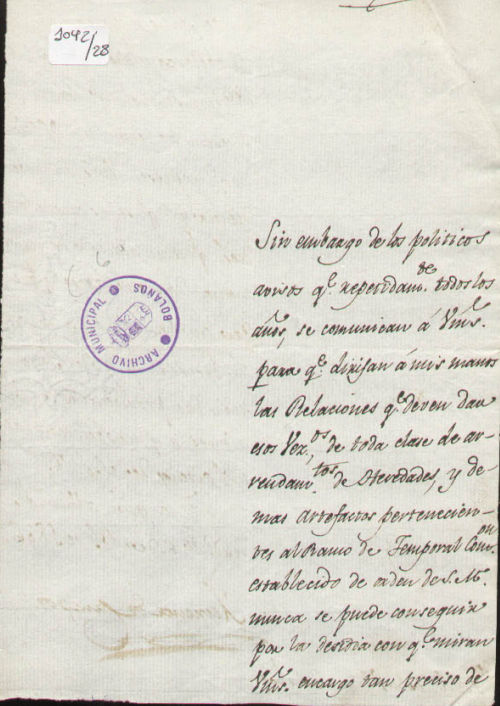 1042/28
ARCHIVO MUNICIPAL
BOLAÑOS
Sin embargo de los politicos
avisos q.e repetidam.te todos los
años, se comunican á Vms.
para q.e dirijan á mis manos
las Relaciones q.e deven dar
esos Vez.os de toda clase de ar-
rendam.tos de Heredades, y de-
mas artefactos pertenecien-
tes al Ramo de Temporal Con.on
establecido de orden de S. M.
nunca se puede conseguir
por la desidia con q.e miran
Vms. encargo tan preciso de